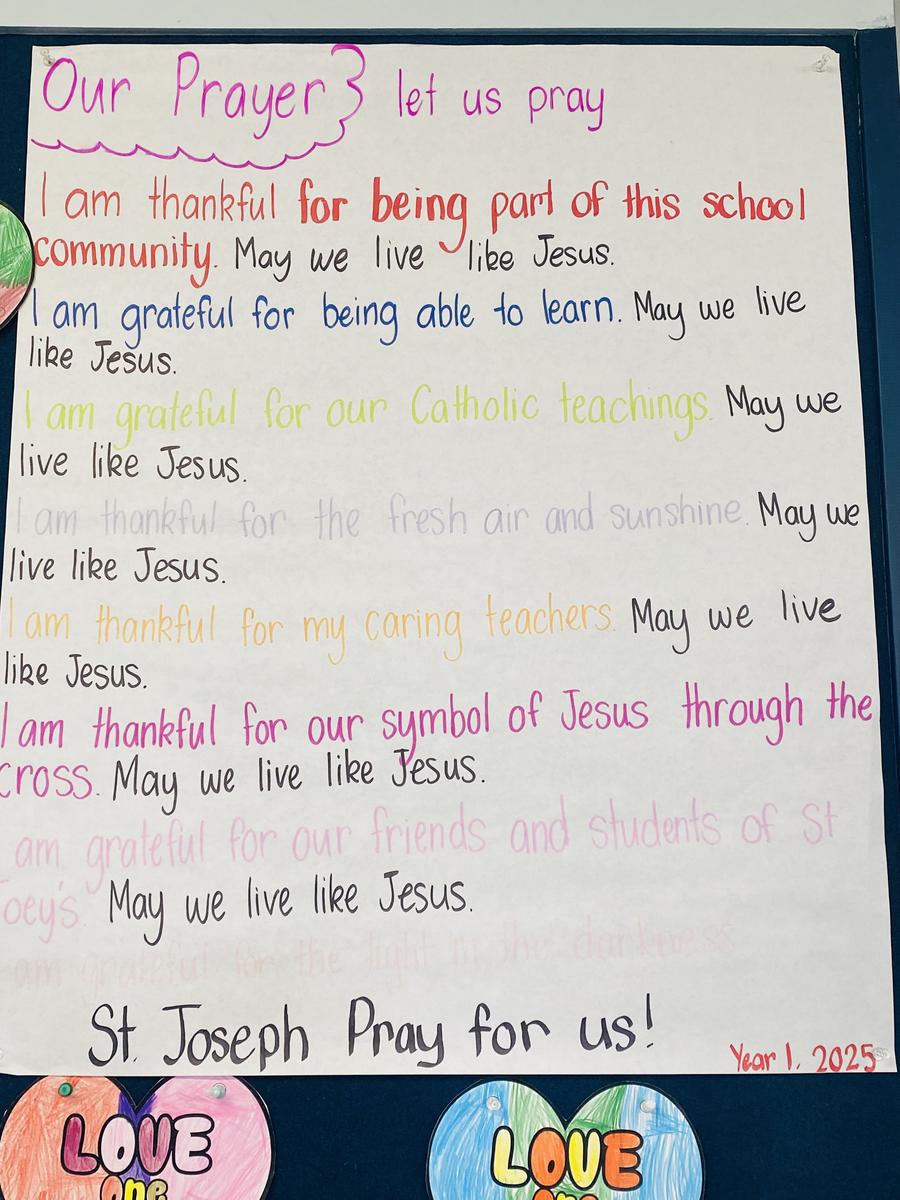 Our Prayer let us pray
I am thankful for being part of this school
community. May we live like Jesus.
I am grateful for being able to learn. May we live
like Jesus.
I am grateful for our Catholic teachings. May we
live like Jesus.
I am thankful for the fresh air and sunshine. May we
live like Jesus.
I am thankful for my caring teachers. May we live
like Jesus.
I am thankful for our symbol of Jesus through the
cross. May we live like Jesus.
am grateful for our friends and students of St
oey's. May we live like Jesus.
am grateful for the light in the darkness
St. Joseph Pray for us!
Year 1, 2025
LOVE LOVE
one one